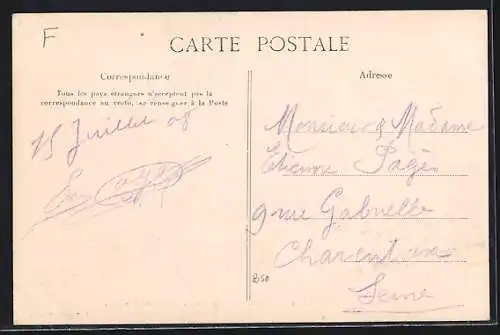 F
CARTE POSTALE
Correspondance
Tous les pays étrangers n'acceptent pas la
correspondance au verso, se renseigner à la Poste
15 Juillet 08
Adresse
Monsieur & Madame
Etienne Pagès
9 rue Gabrielle
Charenton
Seine
B50